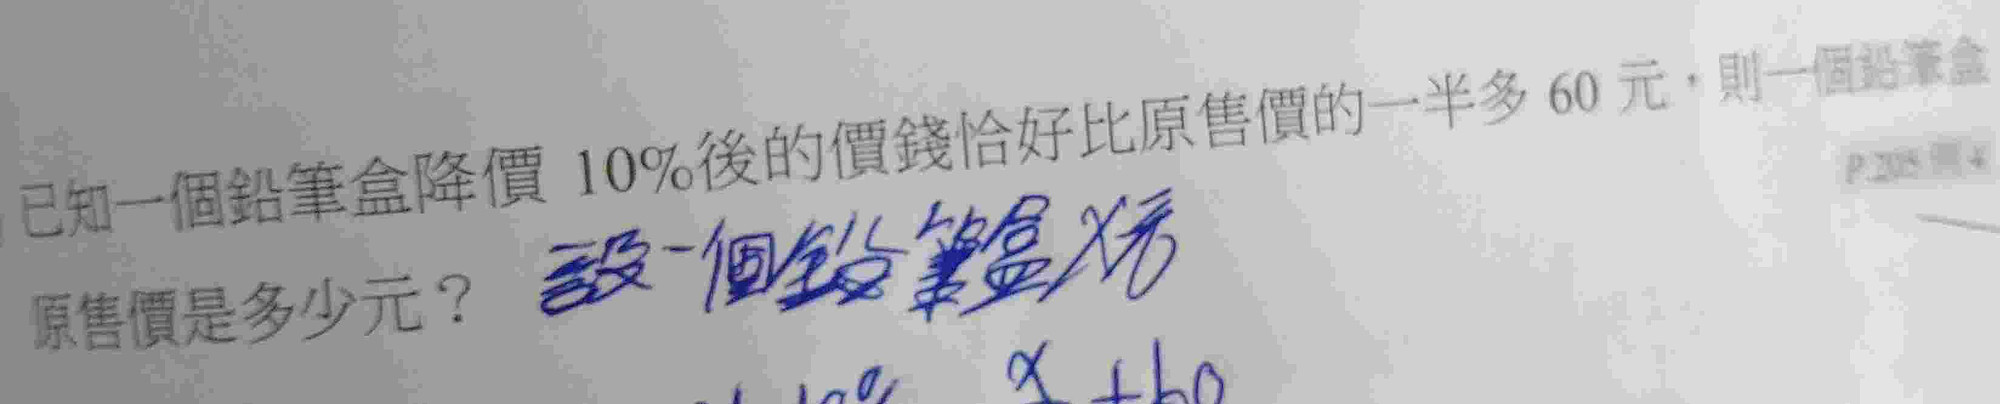 已知一個鉛筆盒降價 10%後的價錢恰好比原售價的一半多 60 元，則一個鉛筆盒
原售價是多少元？
設一個鉛筆盒X元